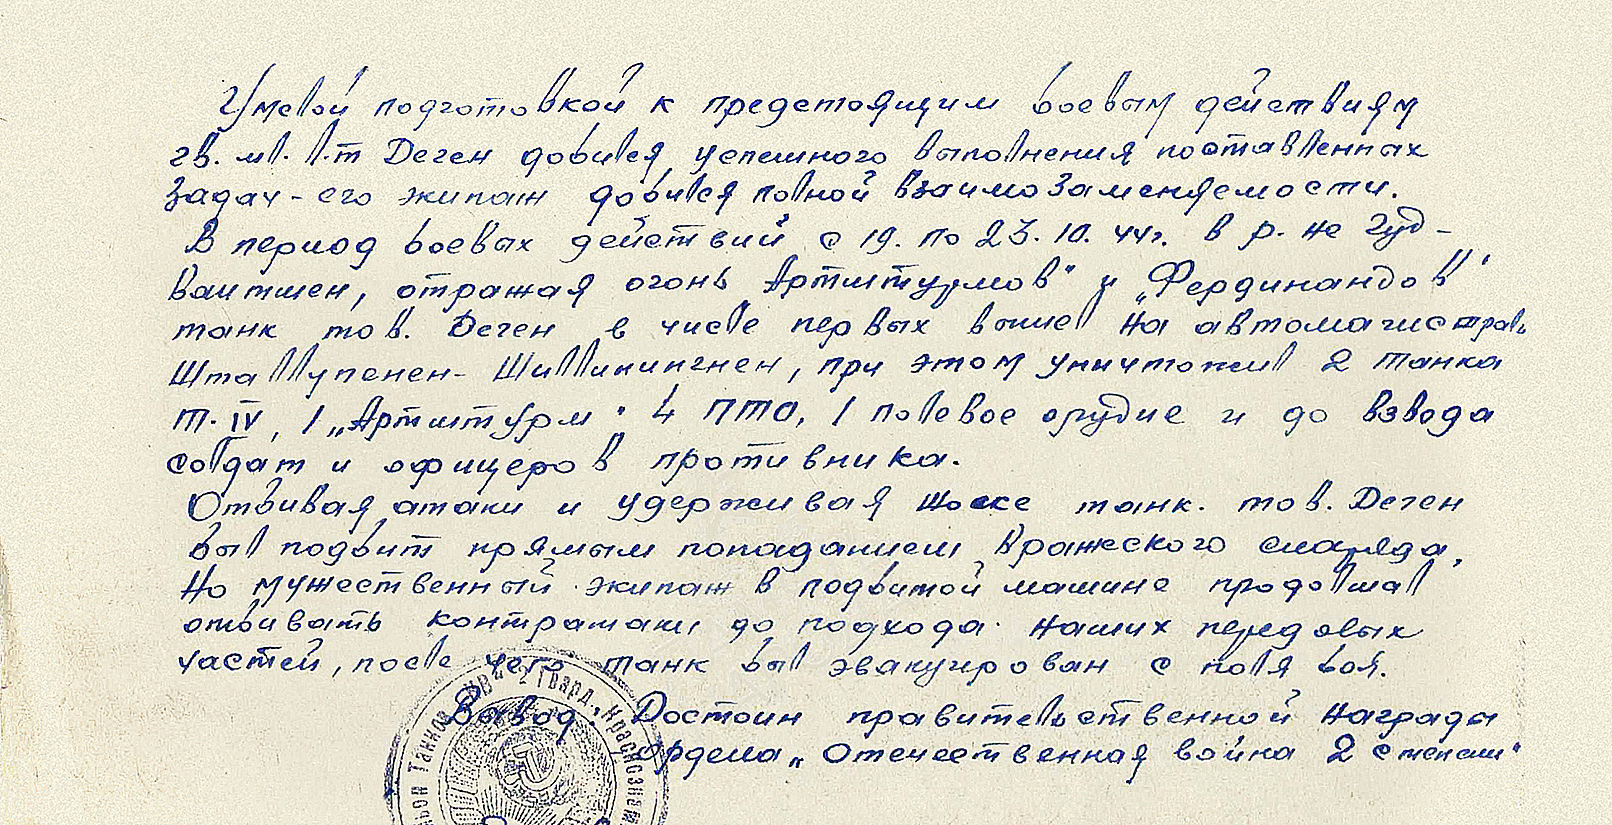 Умелой подготовкой к предстоящим боевым действиям
гв. мл. л-т Деген добился успешного выполнения поставленных
задач - его экипаж добился полной взаимозаменяемости.
В период боевых действий с 19. по 23.10.44г. в р-не Гуд-
ваитшен, отражая огонь Артштурмов" и „Фердинандов"
танк тов. Деген в числе первых вышел на автомагистраль
Шталлупенен - Шиллинингнен, при этом уничтожил 2 танка
Т-IV, 1 „Артштурм". 4 ПТО, 1 полевое орудие и до взвода
солдат и офицеров противника.
Отбивая атаки и удерживая шоссе танк. тов. Деген
был подбит прямым попаданием вражеского снаряда,
Но мужественный экипаж в подбитой машине продолжал
отбивать контратаки до подхода наших передовых
частей, после чего танк был эвакуирован с поля боя.
Вывод: Достоин правительственной награды
Ордена „Отечественная война 2 степени"
Танков 2 Гвард. Краснознам